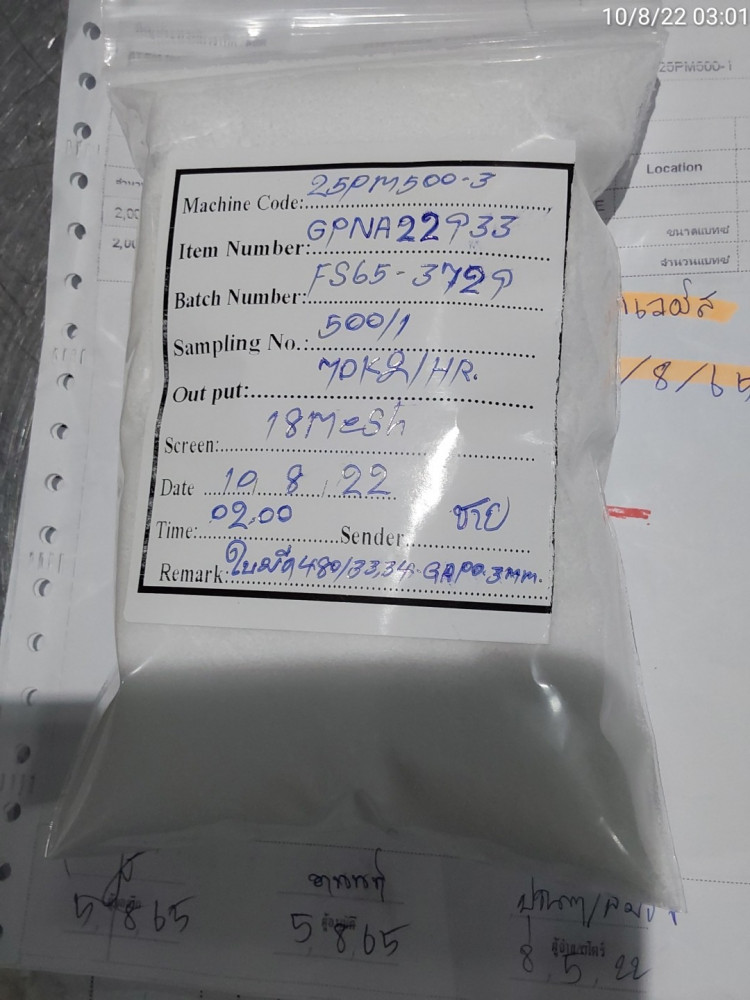 10/8/22 03:01
25PM500-1
Location
2,00
ขนาดแบทซ์
จำนวนแบทช์
/8/65
Machine Code: 25PM500-3
Item Number: GPNA22933
Batch Number: FS65-3729
Sampling No.: 500/1
Out put: 70Kg/HR.
Screen: 18Mesh
Date 10 8 22
Time: 02.00 Sender ชาย
Remark: ใบมีด 480/33,34 GAP 0.3mm.
5 8 65
5 8 65
8 5 22